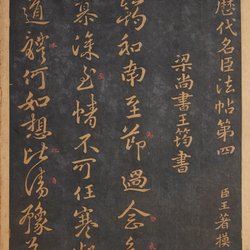 歷代名臣法帖第四
臣王著模
梁尚書王筠書
筠和南至節過念
慕深至情不可任寒凝
道體何如想比清豫